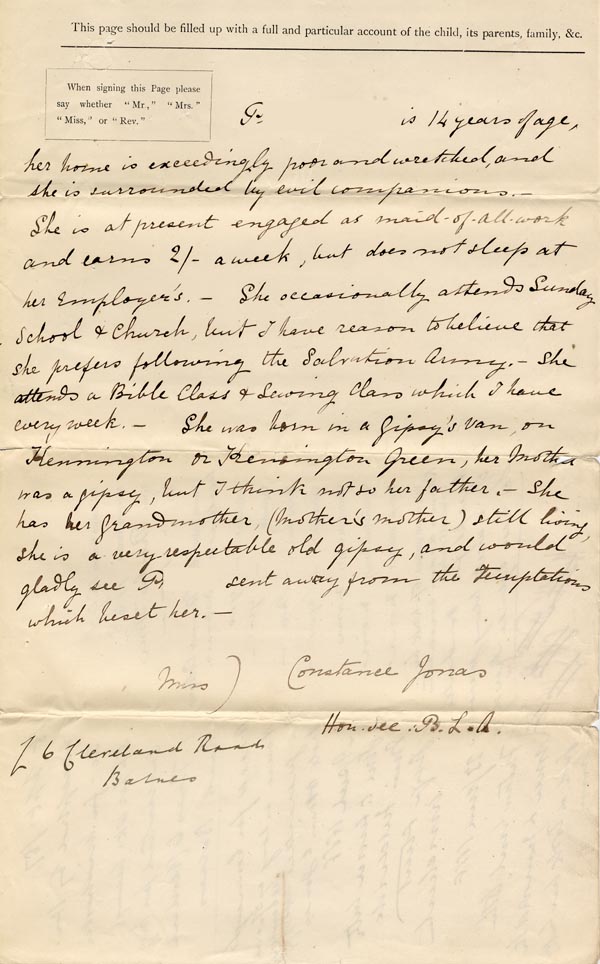 This page should be filled up with a full and particular account of the child, its parents, family, &c.
When signing this Page please
say whether "Mr," "Mrs."
"Miss," or "Rev."
is 14 years of age,
her home is exceedingly poor and wretched, and
she is surrounded by evil companions. —
She is at present engaged as maid-of-all-work
and earns 2/- a week, but does not sleep at
her Employer's. — She occasionally attends Sunday
School & Church, but I have reason to believe that
she prefers following the Salvation Army. — She
attends a Bible Class & Sewing Class which I have
every week. — She was born in a Gipsy's van, on
Kennington or Kensington Green, her Mother
was a gipsy, but I think not so her father. — She
has her grandmother, (Mother's mother) still living,
she is a very respectable old gipsy, and would
gladly see sent away from the Temptations
which beset her. —
Miss) Constance Jonas
Hon. Sec. B. L. A.
6 Cleveland Road
Barnes